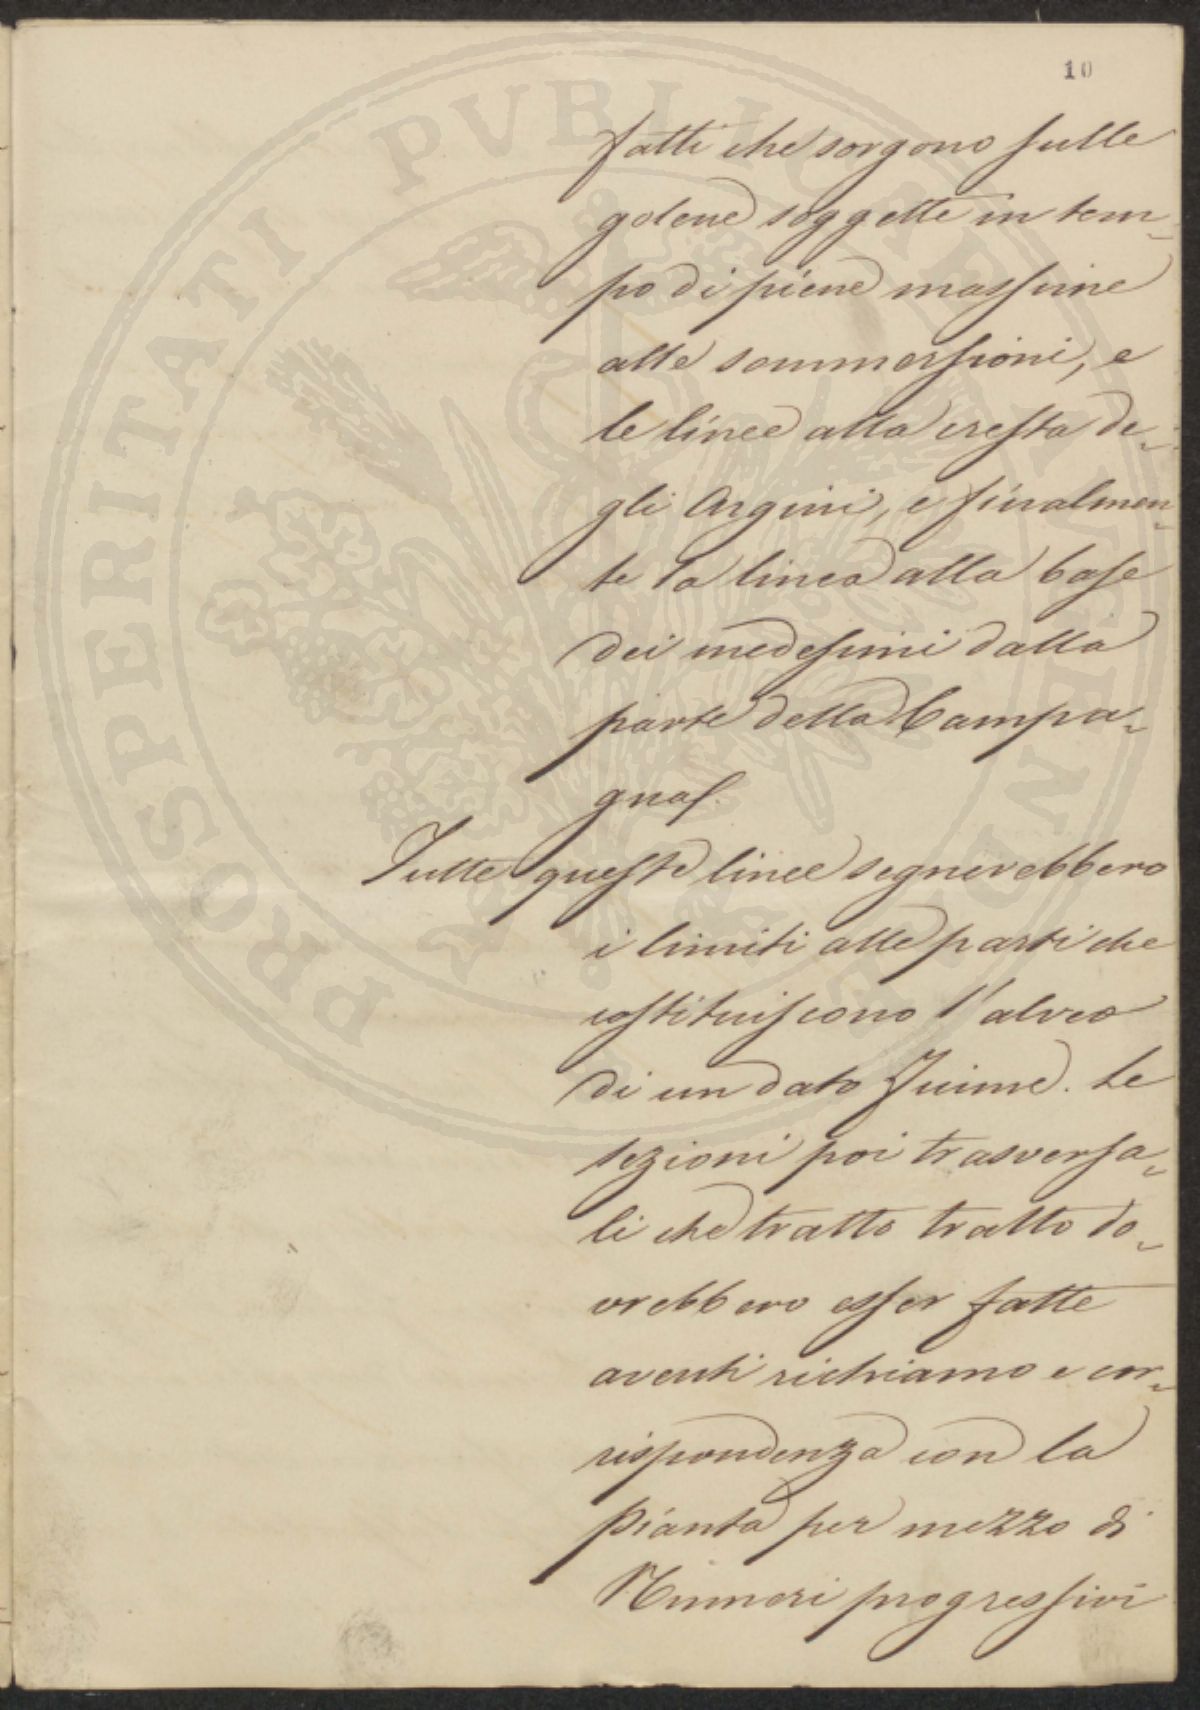 10
fatti che sorgono sulle
golene soggette in tem-
po di piene massime
alle sommersioni, e
le linee alla cresta de-
gli Argini, e finalmen-
te la linea alla base
dei medesimi dalla
parte della Campa-
gna.
Tutte queste linee segnerebbero
i limiti alle parti che
costituiscono l'alveo
di un dato fiume. Le
sezioni poi trasversa-
li che tratto tratto do-
vrebbero esser fatte
aventi richiamo e cor-
rispondenza con la
Pianta per mezzo di
Numeri progressivi
PROSPERITATI PVBLICAE AVGENDAE